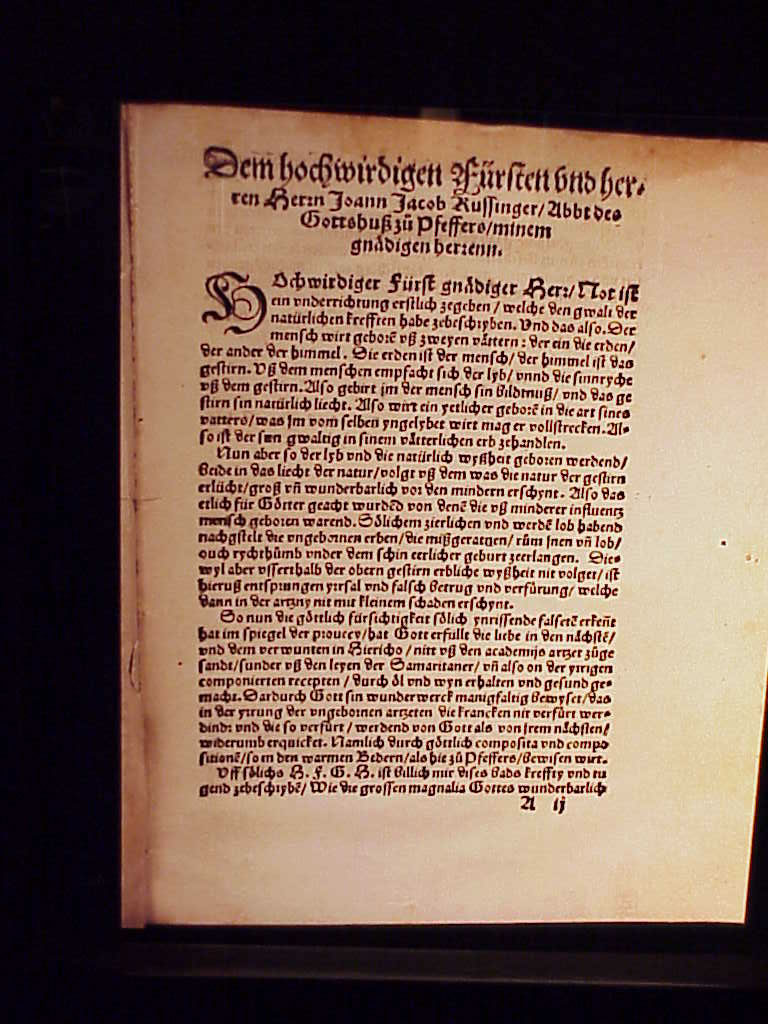 Dem hochwirdigen Fürsten vnd her-
ren Herrn Joann Jacob Russinger/ Abbt des
Gottshuß zů Pfeffers/ minem
gnådigen herrenn.
HOchwirdiger Fürst gnådiger Herr/ Not ist
ein vnderrichtung erstlich zegeben/ welche den gwalt der
natürlichen krefften habe zebeschryben. Vnd das also. Der
mensch wirt geborē vß zweyen våttern: der ein die erden/
der ander der himmel. Die erden ist der mensch/ der himmel ist das
gestirn. Vß dem menschen empfacht sich der lyb/ vnnd die sinnryche
vß dem gestirn. Also gebirt jm der mensch sin bildtnuß/ vnd das ge
stirn sin natürlich liecht. Also wirt ein yetlicher geborē in die art sines
vatters/ was jm vom selben yngelybet wirt mag er vollstrecken. Al-
so ist der sun gwaltig in sinem våtterlichen erb zehandlen.
Nun aber so der lyb vnd die natürlich wyßheit geboren werdend/
Beide in das liecht der natur/ volgt vß dem was die natur der gestirn
erlücht/ groß vñ wunderbarlich vor den mindern erschynt. Also das
etlich für Götter geacht wurdēd von denē die vß minderer influentz
mensch geboren warend. Sölichem zierlichen vnd werdē lob habend
nachgstelt die vngebornen erben/ die mißgeratnen/ rům jnen vñ lob/
ouch rychthůmb vnder dem schin eerlicher geburt zeerlangen. Die-
wyl aber vsserthalb der obern gestirn erbliche wyßheit nit volget/ ist
hieruß entsprungen yrrsal vnd falsch betrug vnd verfürung/ welche
dann in der artzny nit mit kleinem schaden erschynt.
So nun die göttlich fürsichtigkeit sölich ynrissende falsetē erkeñt
hat im spiegel der proucey/ hat Gott erfüllt die liebe in den nåchstē/
vnd dem verwunten in Hiericho/ nitt vß den academijs artzet zůge
sandt/ sunder vß den leyen der Samaritaner/ vñ also on der yrrigen
componierten recepten/ durch öl vnd wyn erhalten vnd gesund ge-
macht. Dardurch Gott sin wunderwerck manigfaltig bewyset/ das
in der yrrung der vngebornen artzeten die krancken nit verfürt wer-
dind: vnd die so verfürt/ werdend von Gott als von jrem nåchsten/
widerumb erquicket. Namlich durch göttlich composita vnd compo
sitionē/ so in den warmen Bedern/ als hie zů Pfeffers/ bewisen wirt.
Vff sölichs H. F. G. H. ist billich mir dises bads krefften vnd tu
gend zebeschrybē/ Wie die grossen magnalia Gottes wunderbarlich
A ij